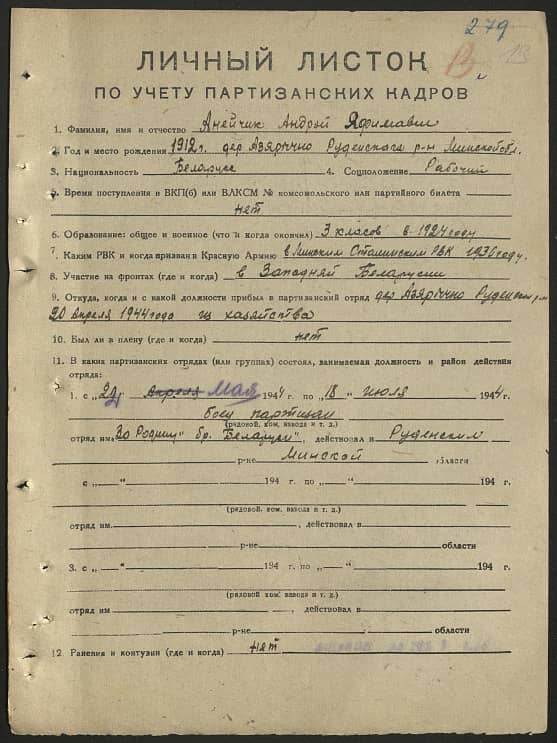 279
В 13
ЛИЧНЫЙ ЛИСТОК
ПО УЧЕТУ ПАРТИЗАНСКИХ КАДРОВ
1. Фамилия, имя и отчество Анейчик Андрей
2. Год и место рождения 1912 г. дер Азярычно Руденского р-н Минской обл.
3. Национальность Беларус 4. Соцположение Рабочий
5. Время поступления в ВКП(б) или ВЛКСМ № комсомольского или партийного билета
нет
6. Образование: общее и военное (что и когда окончил) 3 класов в 1924 году
7. Каким РВК и когда призван в Красную Армию в Минским Сталинским РВК 1936 году.
8. Участие на фронтах (где и когда) в Западняй Беларусии
9. Откуда, когда и с какой должности прибыл в партизанский отряд дер Азярычно Руденск р-н
20 Апреля 1944 года из хазяйства
10. Был ли в плену (где и когда) нет
11. В каких партизанских отрядах (или группах) состоял, занимаемая должность и район действия
отряда:
1. с „ “ Апреля Мая 1944 г. по „18 “ июля 1944 г.
боец партизан
(рядовой, ком. взвода и т. д.)
отряд им. За Родину" бр. Беларуси", действовал в Руденским
р-не Минской области
с „ “ 194 г. по „ “ 194 г.
(рядовой, ком. взвода и т. д.)
отряд им. , действовал в
р-не области
3. с „ “ 194 г. по „ “ 194 г.
(рядовой ком. взвода и т. д.)
отряд им , действовал в
р-не области
12. Ранения и контузии (где и когда) нет